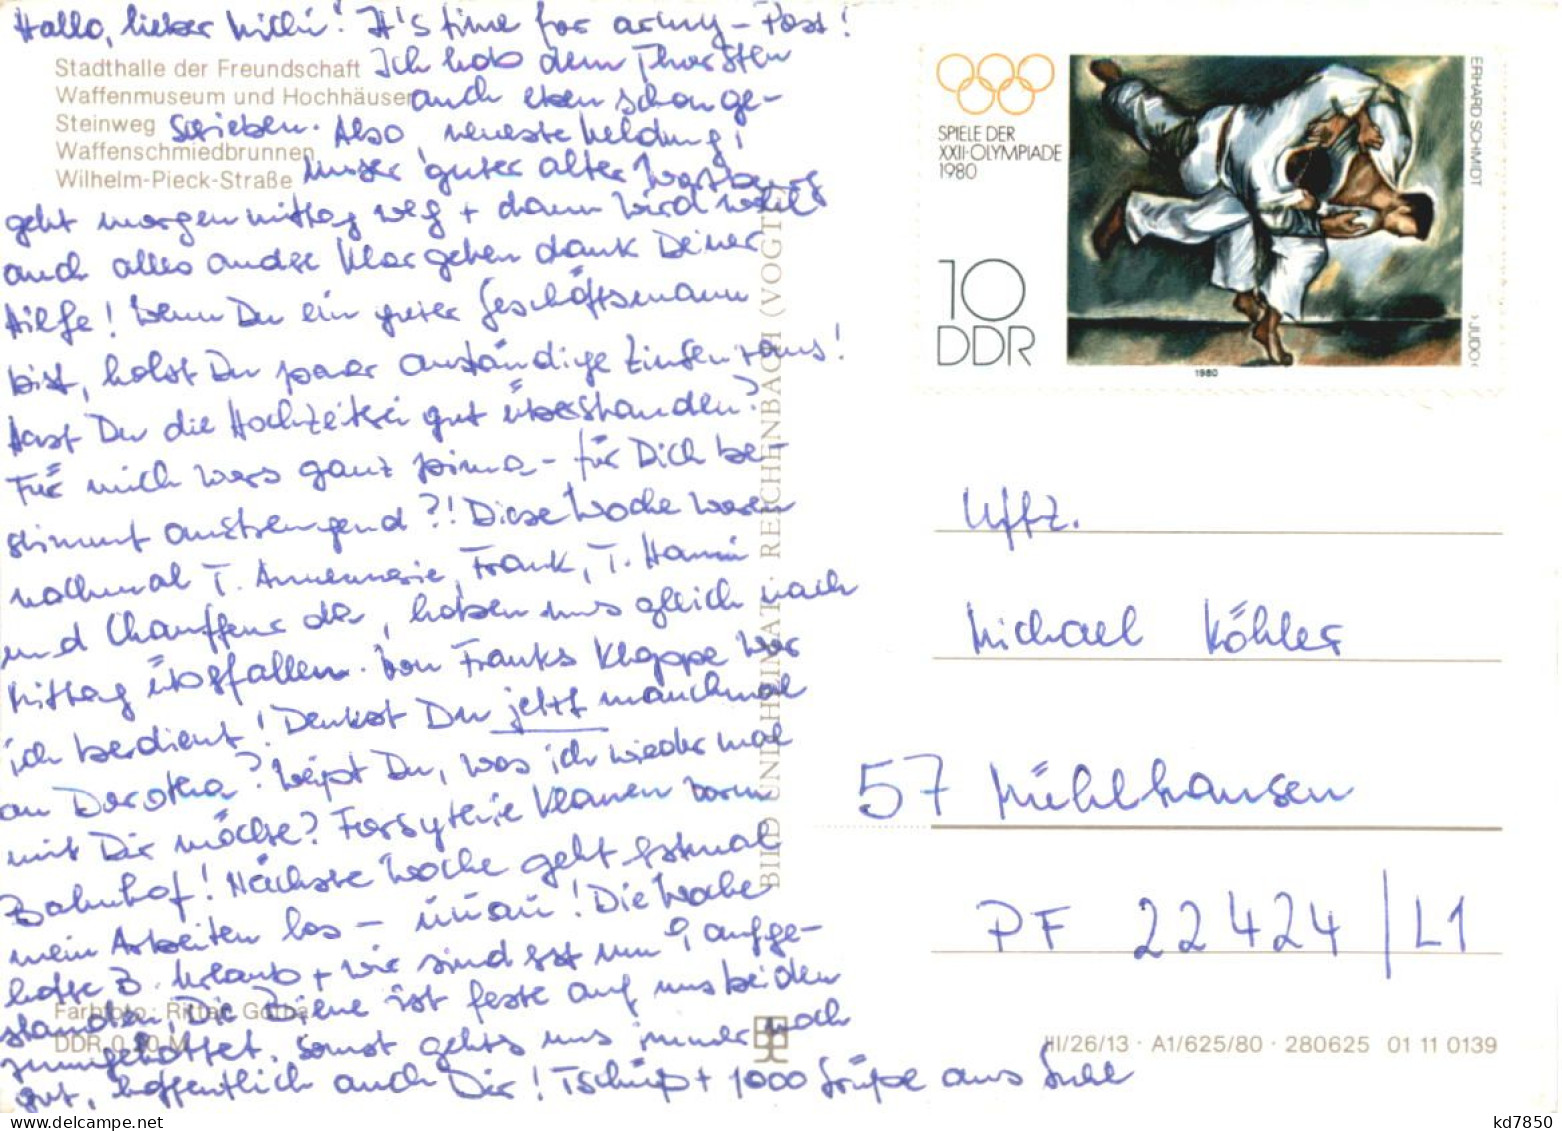 Hallo, lieber Michi! It's time for army-Post!
Stadthalle der Freundschaft
Waffenmuseum und Hochhäuser
Steinweg
Waffenschmiedbrunnen
Wilhelm-Pieck-Straße
Ich hab dem Thorsten
auch eben schon ge-
schrieben. Also, neueste Meldung:
Unser guter alter Wartburg
geht morgen mittag weg + dann wird wohl
auch alles andre klar gehen dank Deiner
Hilfe! Wenn Du ein guter Geschäftsmann
bist, holst Du paar anständige Zinsen raus!
Hast Du die Hochzeitsei gut überstanden?
Für mich wars ganz prima - für Dich be-
stimmt anstrengend?! Diese Woche waren
nochmal T. Annemarie, Frank, T. Hanni
und Chauffeur da, haben uns gleich nach
Mittag überfallen. Von Franks Klappe war
ich bedient! Denkst Du jetzt manchmal
an Dorothea? Weißt Du, was ich wieder mal
mit Dir möchte? Forsythie klauen vorm
Bahnhof! Nächste Woche geht erstmal
mein Arbeiten los - Die Woche
hatte B. Urlaub + wir sind erst um 9 aufge-
standen, Die Biene ist feste auf uns beiden
rumgehottet. Sonst gehts uns immer noch
gut, hoffentlich auch Dir! Tschüß + 1000 Grüße aus Suhl
Farbfoto: Rittan, Gotha
DDR 0,20 M
BILD UND HEIMAT · REICHENBACH (VOGTL)
SPIELE DER
XXII·OLYMPIADE
1980
10
DDR
ERHARD SCHMIDT
›JUDO‹
1980
Uffz.
Michael Köhler
57 Mühlhausen
PF 22424/L1
III/26/13 · A1/625/80 · 280625 01 11 0139
kd7850